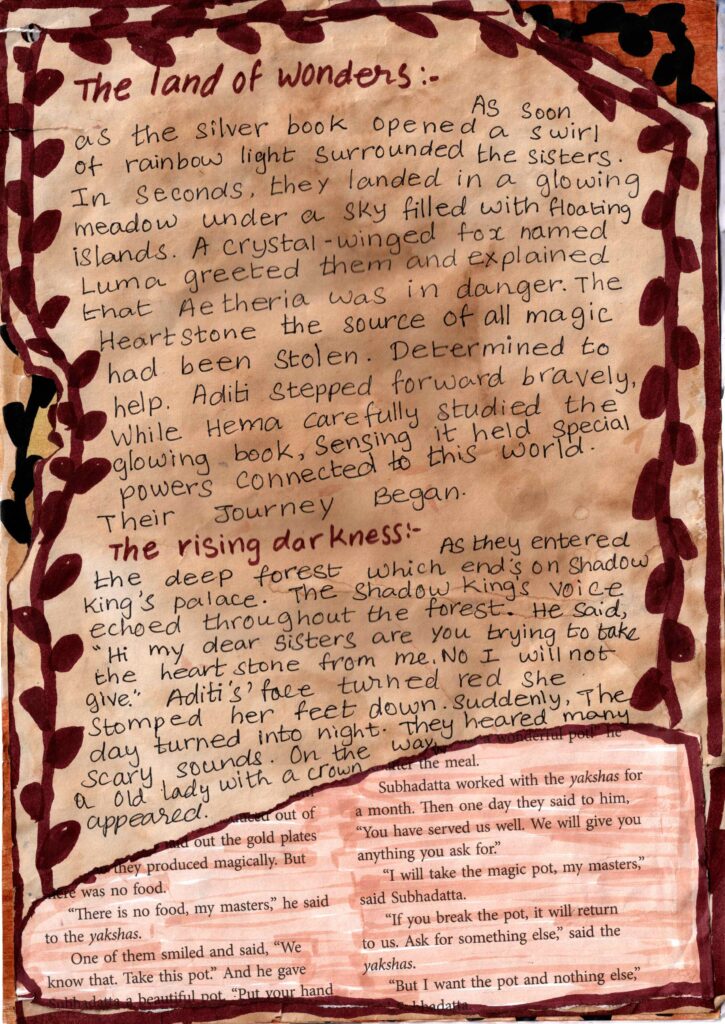 The land of wonders:-
As soon
as the silver book opened a swirl
of rainbow light surrounded the sisters.
In seconds, they landed in a glowing
meadow under a sky filled with floating
islands. A crystal-winged fox named
Luma greeted them and explained
that Aetheria was in danger. The
Heartstone the source of all magic
had been stolen. Determined to
help. Aditi stepped forward bravely,
While Hema carefully studied the
glowing book, sensing it held special
powers connected to this world.
Their Journey Began.
The rising darkness:-
As they entered
the deep forest which end's on shadow
king's palace. The shadow king's voice
echoed throughout the forest. He said,
"Hi my dear sisters are you trying to take
the heart stone from me. No I will not
give." Aditi's' face turned red she
stomped her feet down. Suddenly, The
day turned into night. They heared many
scary sounds. On the way,
a old lady with a crown
appeared.
out of
out the gold plates
they produced magically. But
was no food.
"There is no food, my masters," he said
to the yakshas.
One of them smiled and said, "We
know that. Take this pot." And he gave
Subhadatta a beautiful pot. "Put your hand
wonderful pot!" he
after the meal.
Subhadatta worked with the yakshas for
a month. Then one day they said to him,
"You have served us well. We will give you
anything you ask for."
"I will take the magic pot, my masters,"
said Subhadatta.
"If you break the pot, it will return
to us. Ask for something else," said the
yakshas.
"But I want the pot and nothing else,"
Subhadatta